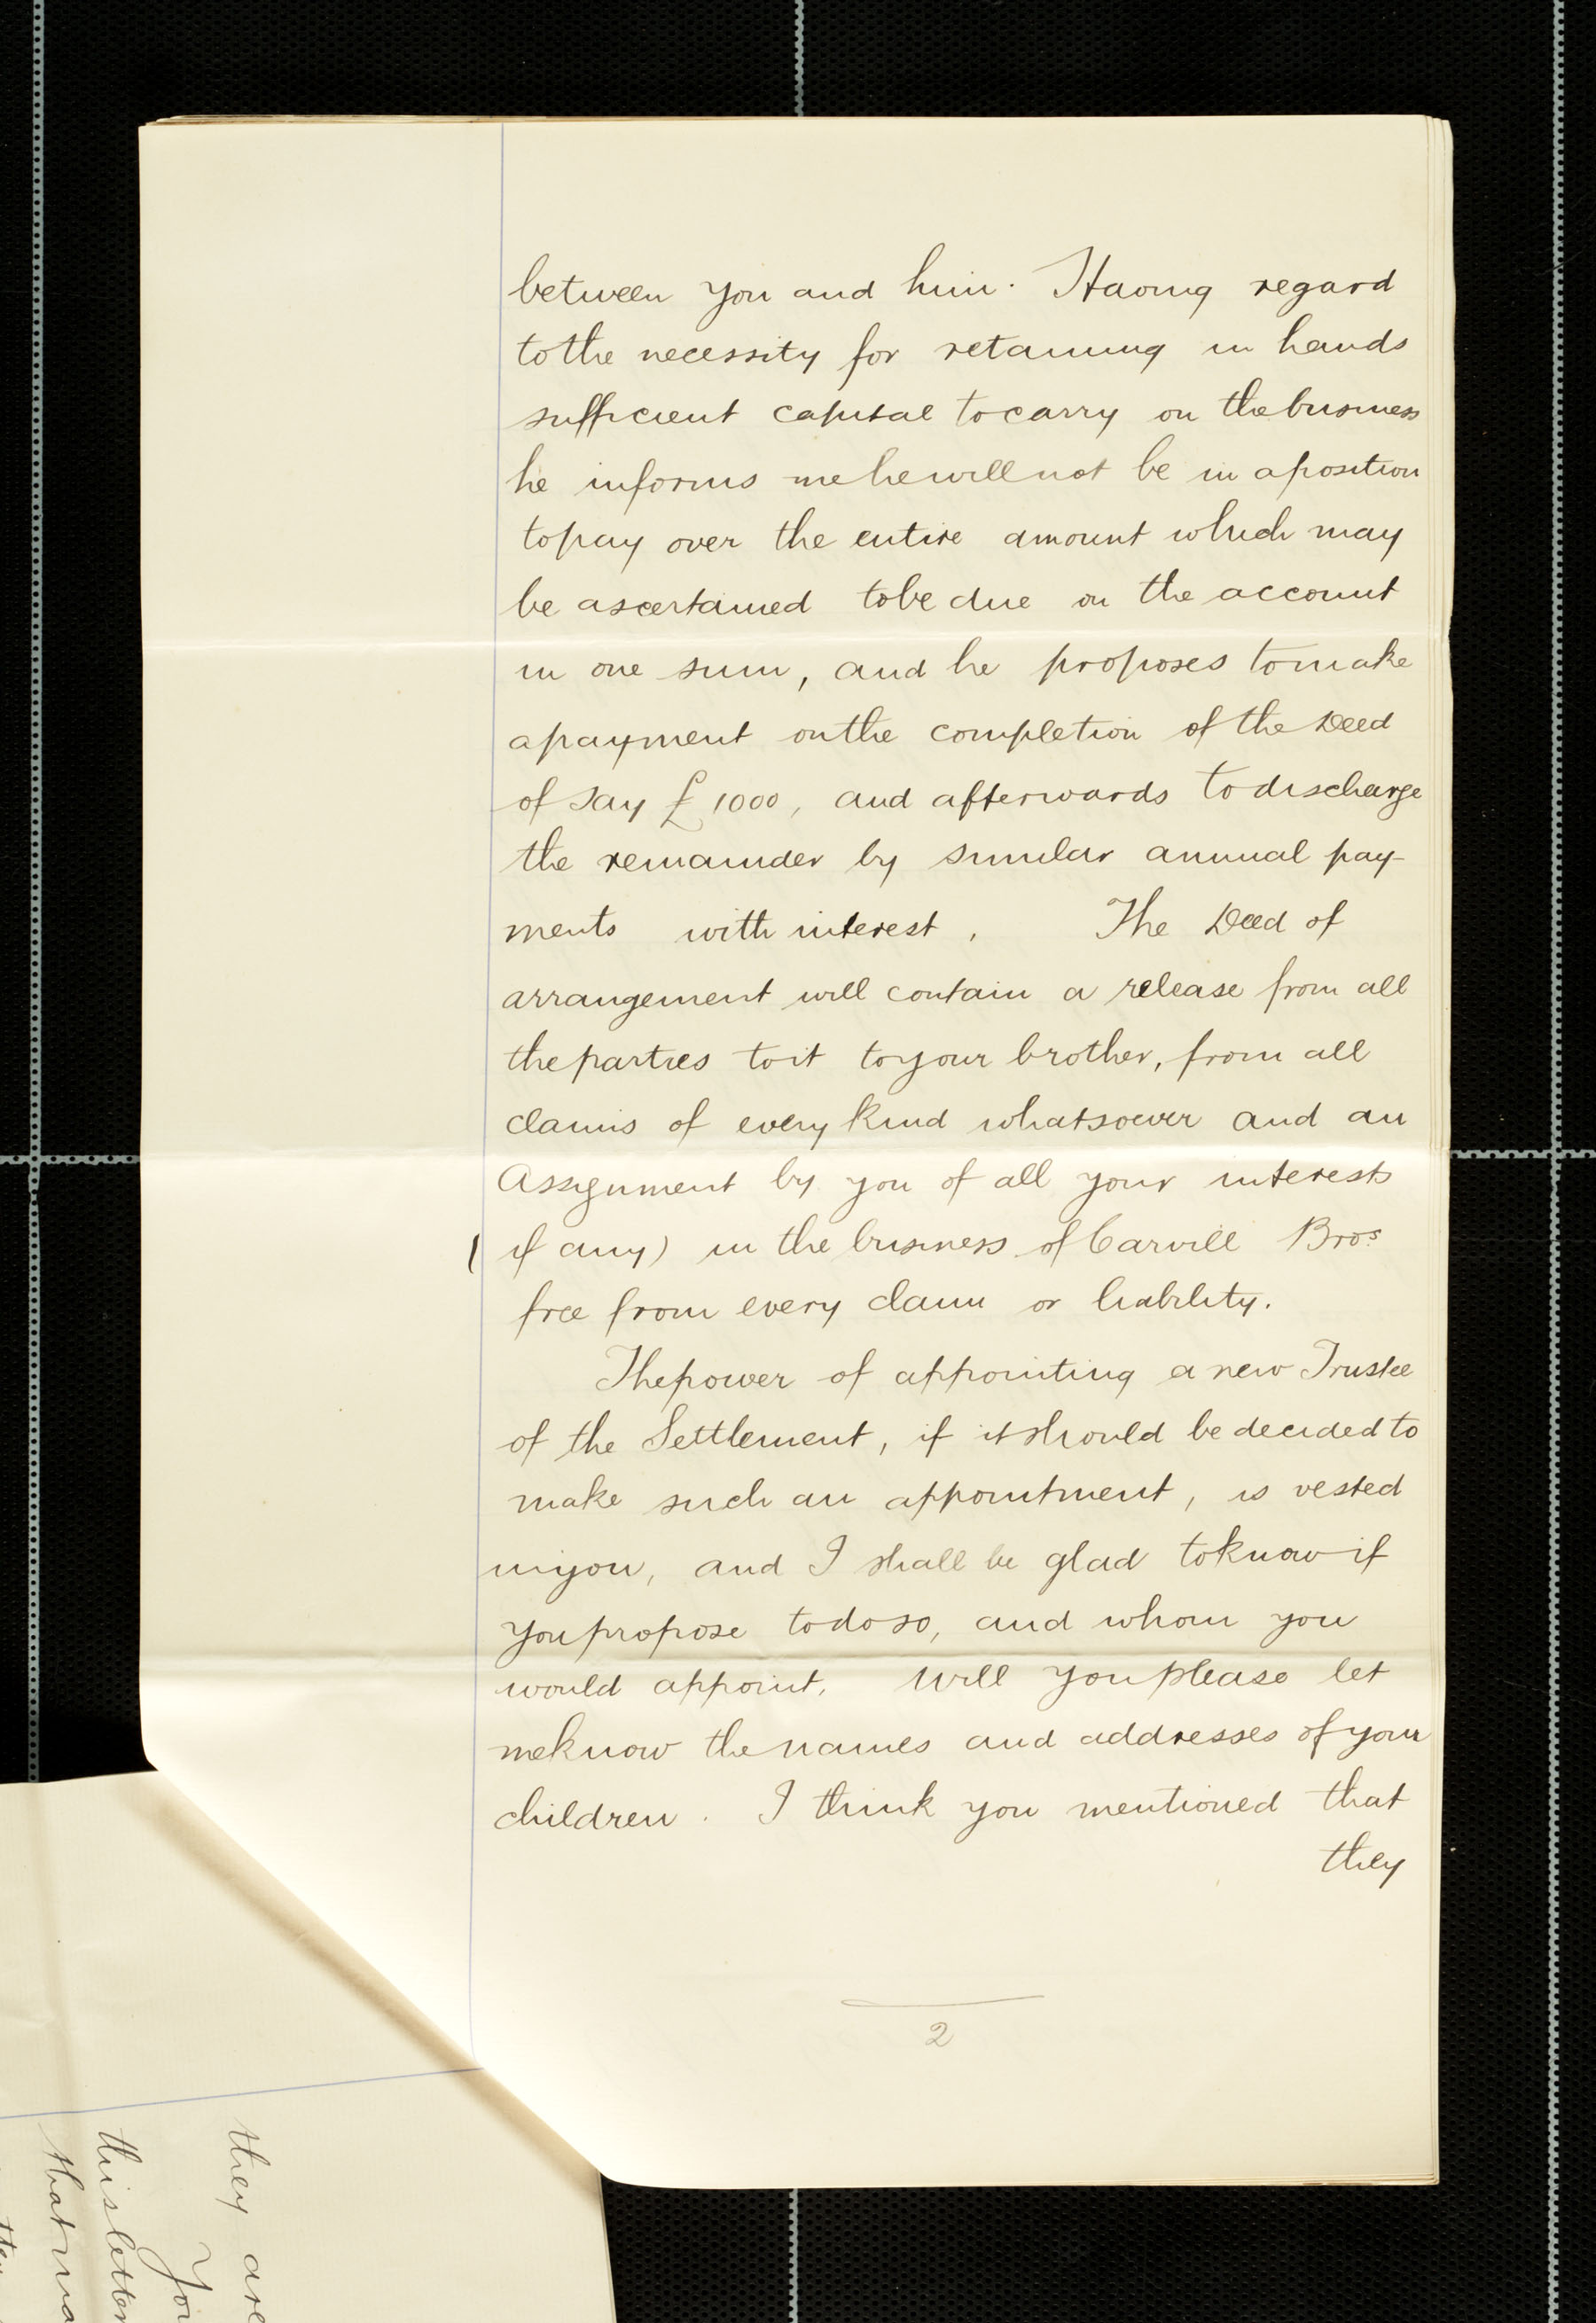 between you and him. Having regard
to the necessity for retaining in hands
sufficient capital to carry on the business
he informs me he will not be in a position
to pay over the entire amount which may
be ascertained to be due on the account
in one sum, and he proposes to make
a payment on the completion of the Deed
of say £1000, and afterwards to discharge
the remainder by similar annual pay-
ments with interest. The Deed of
arrangement will contain a release from all
the parties to it to your brother, from all
claims of every kind whatsoever and an
Assignment by you of all your interests
(if any) in the business of Carvill Bros
free from every claim or liability.
The power of appointing a new Trustee
of the Settlement, if it should be decided to
make such an appointment, is vested
in you, and I shall be glad to know if
you propose to do so, and whom you
would appoint. Will you please let
me know the names and addresses of your
children. I think you mentioned that
they
2
they are
You
this letter
that